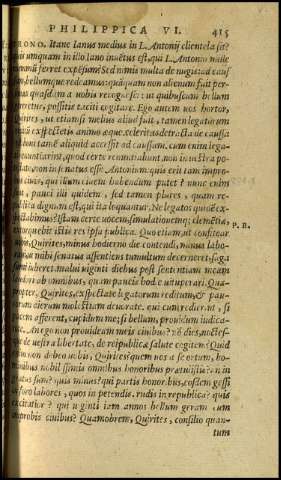 PHILIPPICA VI. 415
PRONO. Itane Ianus medius in L. Antonij clientela sit?
quis umquam in illo Iano inuētus est, qui L. Antonio mille
nummū ferret expēsum? Sed nimis multa de nugis: ad causf
sam bellumque redeamus: quāquam non alienum fuit per-
sonas quasdam à uobis recognosci: ut quibuscum bellum
gereretur, possitis taciti cogitare. Ego autem uos hortor,
Quirites, ut etiamsi melius aliud fuit, tamen legatorum
reditum expectetis animo æquo. celeritas detracta de caussa
est: boni tamē aliquid accessit ad caussam. cum enim lega-
ti renuntiarint, quod certe renuntiabunt, non in uestra po-
testate, non in senatus esse Antonium: quis erit tam impro-
bus ciuis, qui illum ciuem habendum putet? nunc enim
sunt, pauci illi quidem, sed tamen plures, quam re-
publica dignum est, qui ita loquantur, Ne legatos quidē ex-
pectabimus? Istam certe uocem, simulationemq; clementiæ,
extorquebit istis res ipsa publica. Quo etiam, ut confitear
P. R.
uobis, Quirites, minus hodierno die contendi, minus labo-
raui, ut mihi senatus assentiens tumultum decerneret, saga
sumi iuberet. malui uiginti diebus post sententiam meam
laudari ab omnibus, quam a paucis hodie uituperari. Qua-
propter, Quirites, expectate legatorum reditum, & pau-
corum dierum molestiam deuorate. qui cum redierint, si
pacem afferent, cupidum me; si bellum, prouidum iudica-
tote. An ego non prouideam meis ciuibus? nō dies, noctes-
que de uestra libertate, de reipublicæ salute cogitem? Quid
enim non debeo uobis, Quirites? quem uos a se ortum, ho-
minibus nobilissimis omnibus honoribus prætulistis? an in
gratus sum? quis minus? qui partis honoribus, eosdem gessi
in foro labores, quos in petendis. rudis in republica? quis
exercitatior? qui uiginti iam annos bellum geram cum
improbis ciuibus? Quamobrem, Quirites, consilio quan-
tum